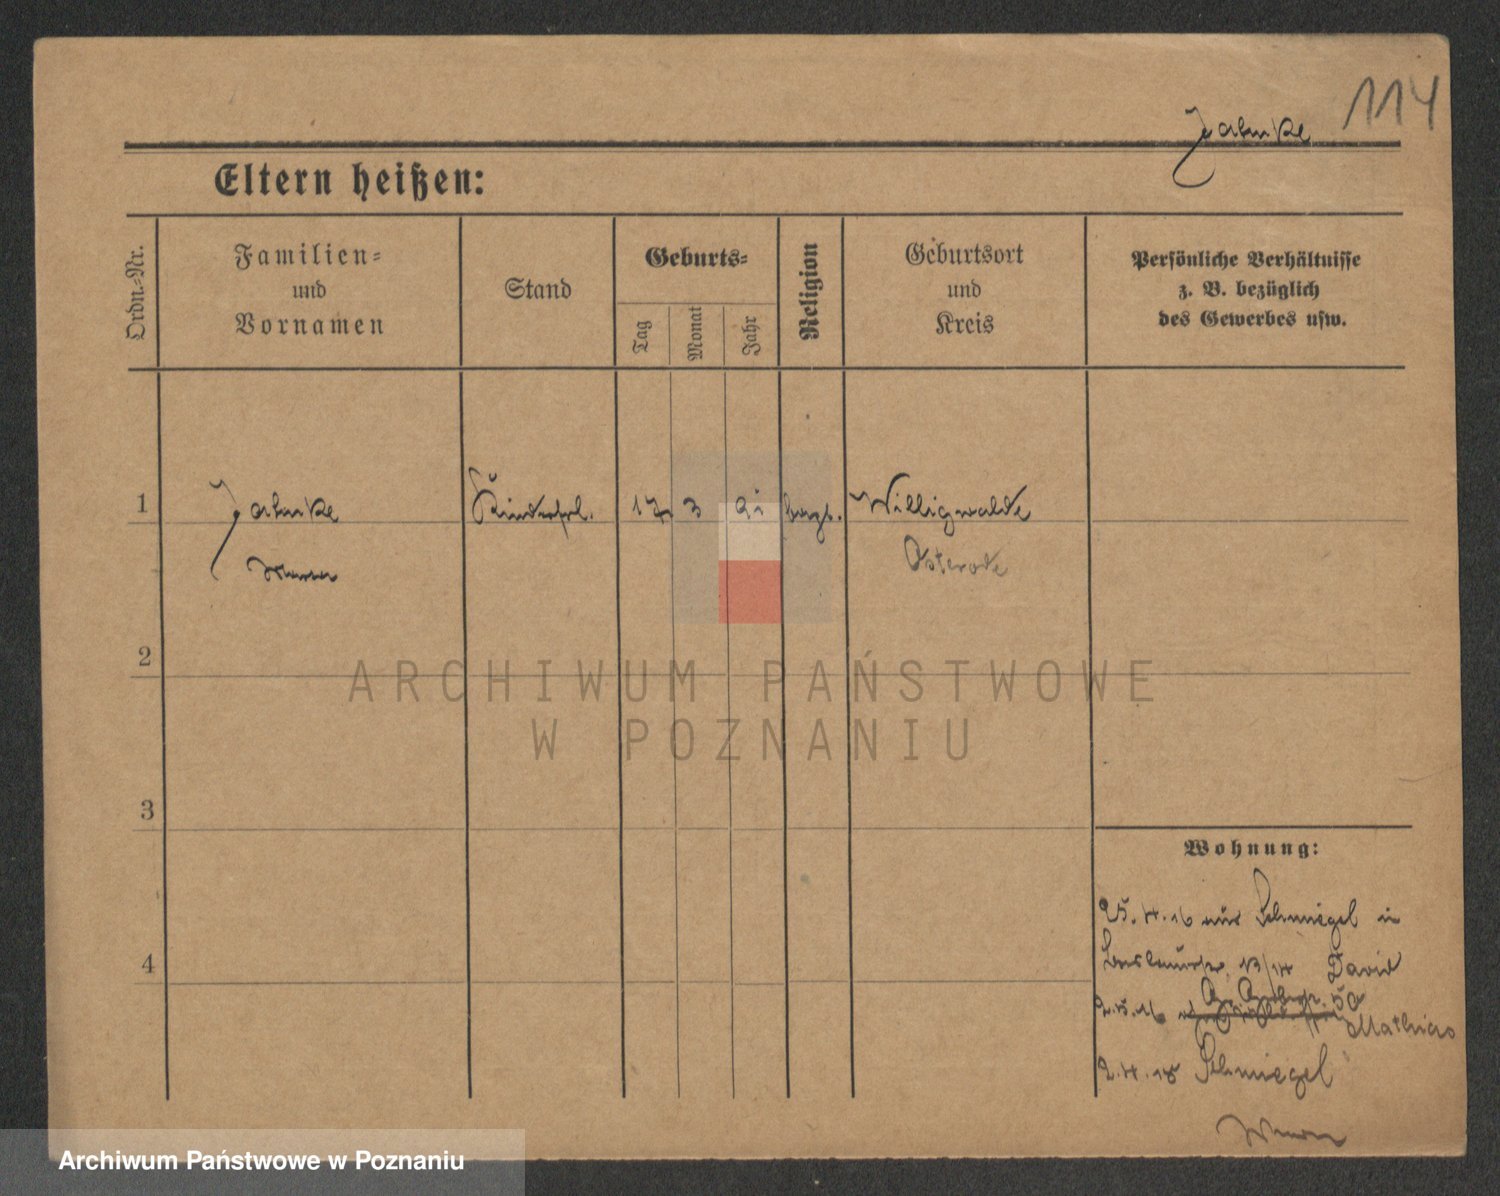 114
Jahnke
Eltern heißen:
Ordn.-Nr.
Familien-
und
Vornamen
Stand
Geburts-
Tag
Monat
Jahr
Religion
Geburtsort
und
Kreis
Persönliche Verhältnisse
z. B. bezüglich
des Gewerbes usw.
1
Jahnke
Kinderfrl.
3
Willigwalde
Osterode
2
ARCHIWUM PAŃSTWOWE
W POZNANIU
3
Wohnung:
25.4.16 aus Schmiegel in
13/14 David
Mathias
2.4.18 Schmiegel
4
Archiwum Państwowe w Poznaniu